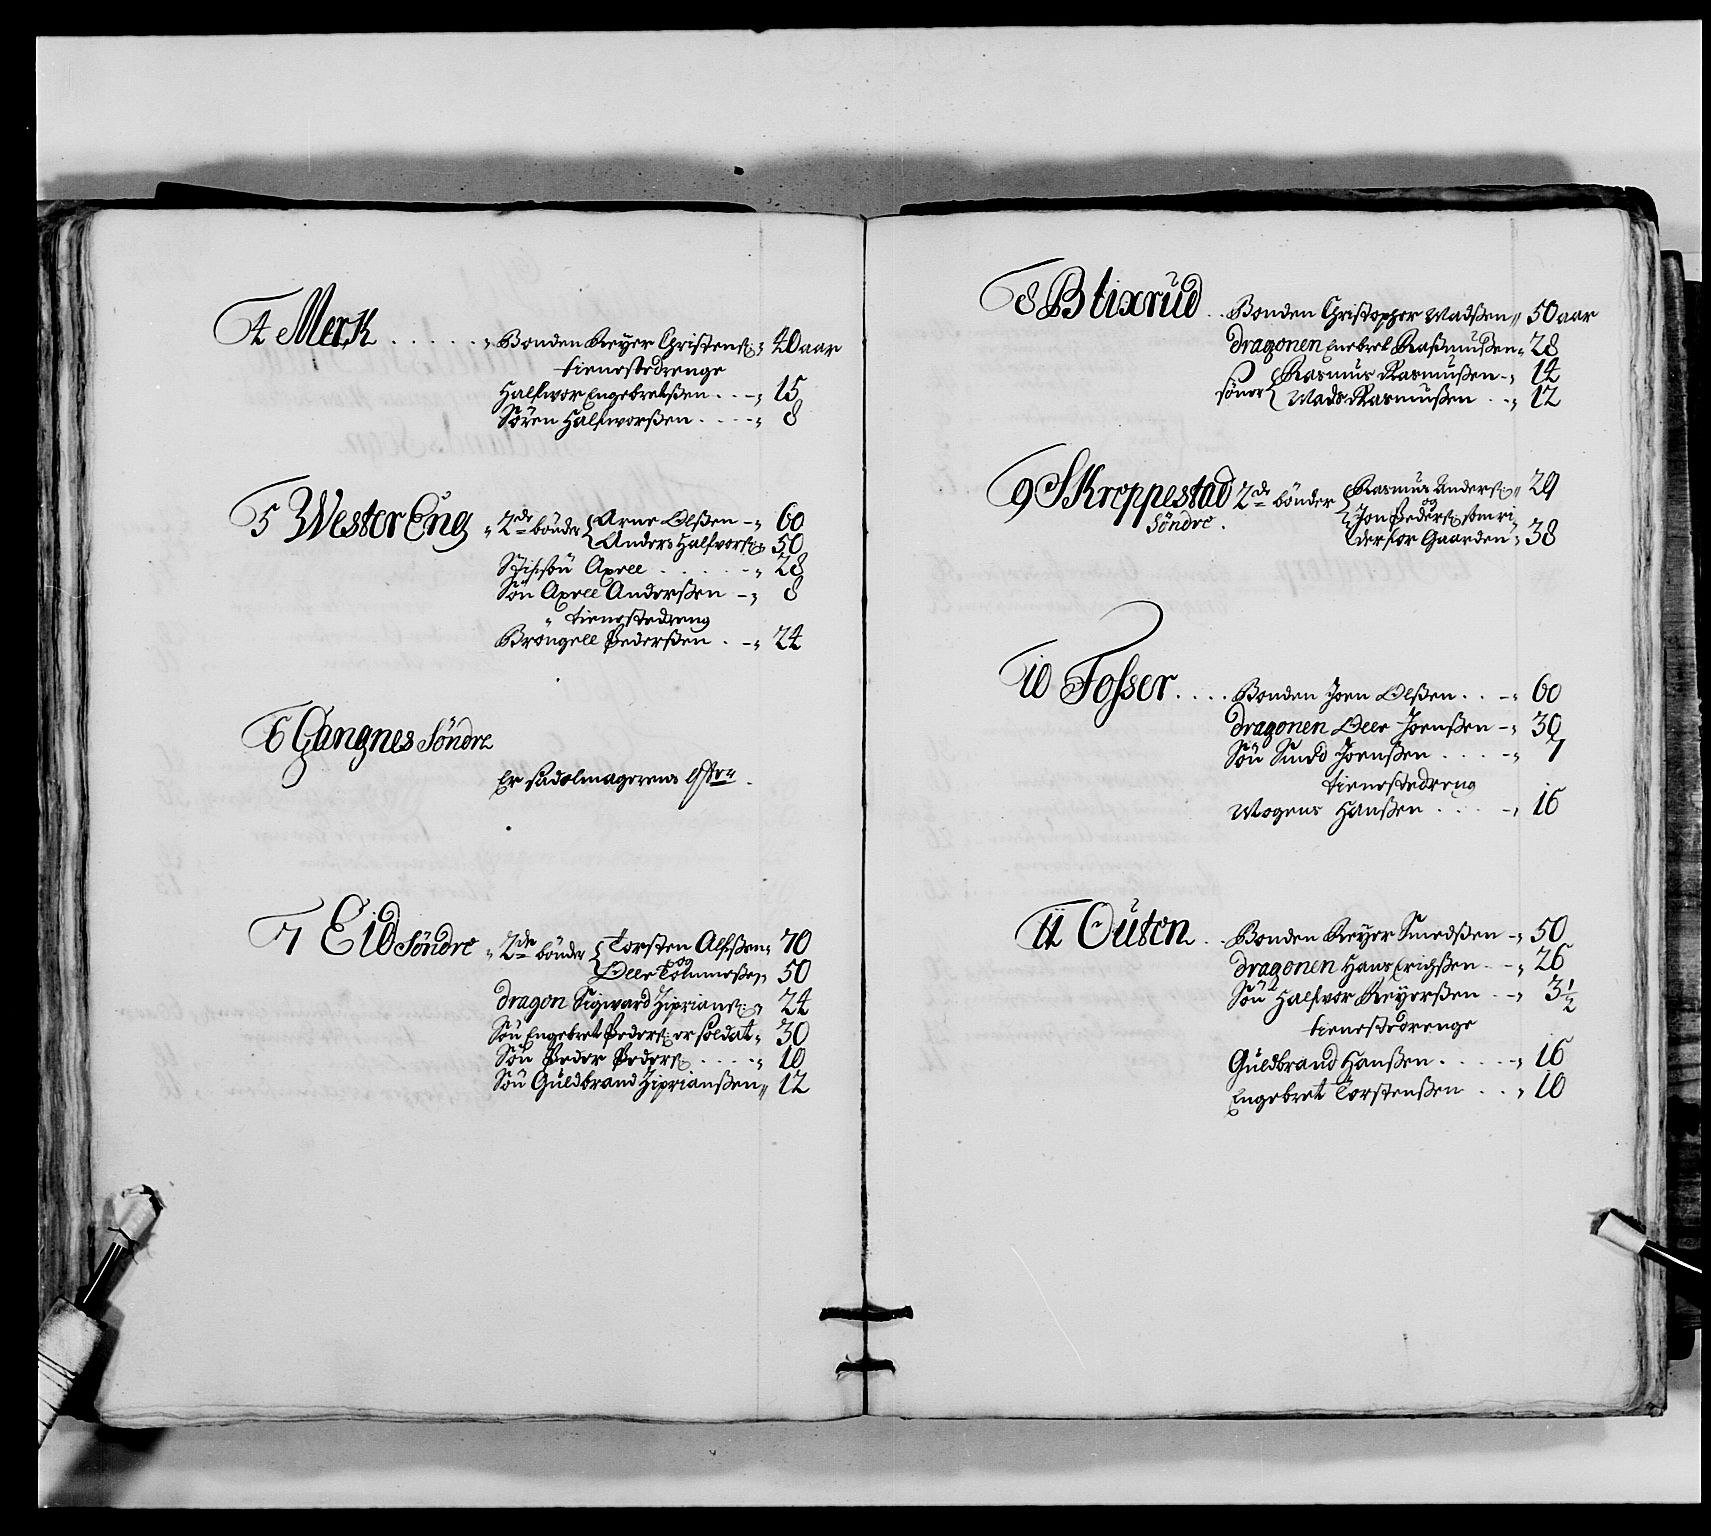 4 Merk . . . . . . Bonden Reyer Christens: 40 aar
tienestedrenge
Halfwor Engebretßen . . - 15
Sören Halfworßen . . . . - 8
5 Wester Eng 2de bönder { Arne Olßen - 60
Anders Halfwors: 50
Stifsön Axell . . . . . . - 28
Sön Axell Anderßen - 8
tienestedreng
Brengell Pederßen . . - 24
6 Gangnes Söndre
Er sadelmagerens
7 Eid Söndre 2de bönder { Torsten Alfßen 70
og
Olle Tommeßen 50
dragon Sigward Ziprians: 24
Sön Engebret Peders: er soldat 30
Sön Peder Peders: . . . . . 10
Sön Guldbrand Ziprianßen 12
8 Blixrud . . Bonden Christopher Madßen 50 aar
dragonen Enebret Raßmußen 28
söner { Rasmus Rasmußen - 14
Mads Rasmußen . . 12
9 Skroppestad 2de bönder { Rasmus Anders: 29
Söndre . og
Jon Peders: som ri
der for Gaarden 38
10 Fosser . . . . Bonden Joen Olßen . . - 60
dragonen Olle Joenßen - 30
Sön Joenßen . . . . - 7
tienestedreng
Mogens Hanßen . . . . - 16
11 Outen . . Bonden Reyer Smedßen - 50
dragonen Hans Erichßen . - 26
Sön Halfvor Reyerßen . - 3½
tienestedrenge
Guldbrand Hanßen . . . . . 16
Engebret Torstenßen . . . 10